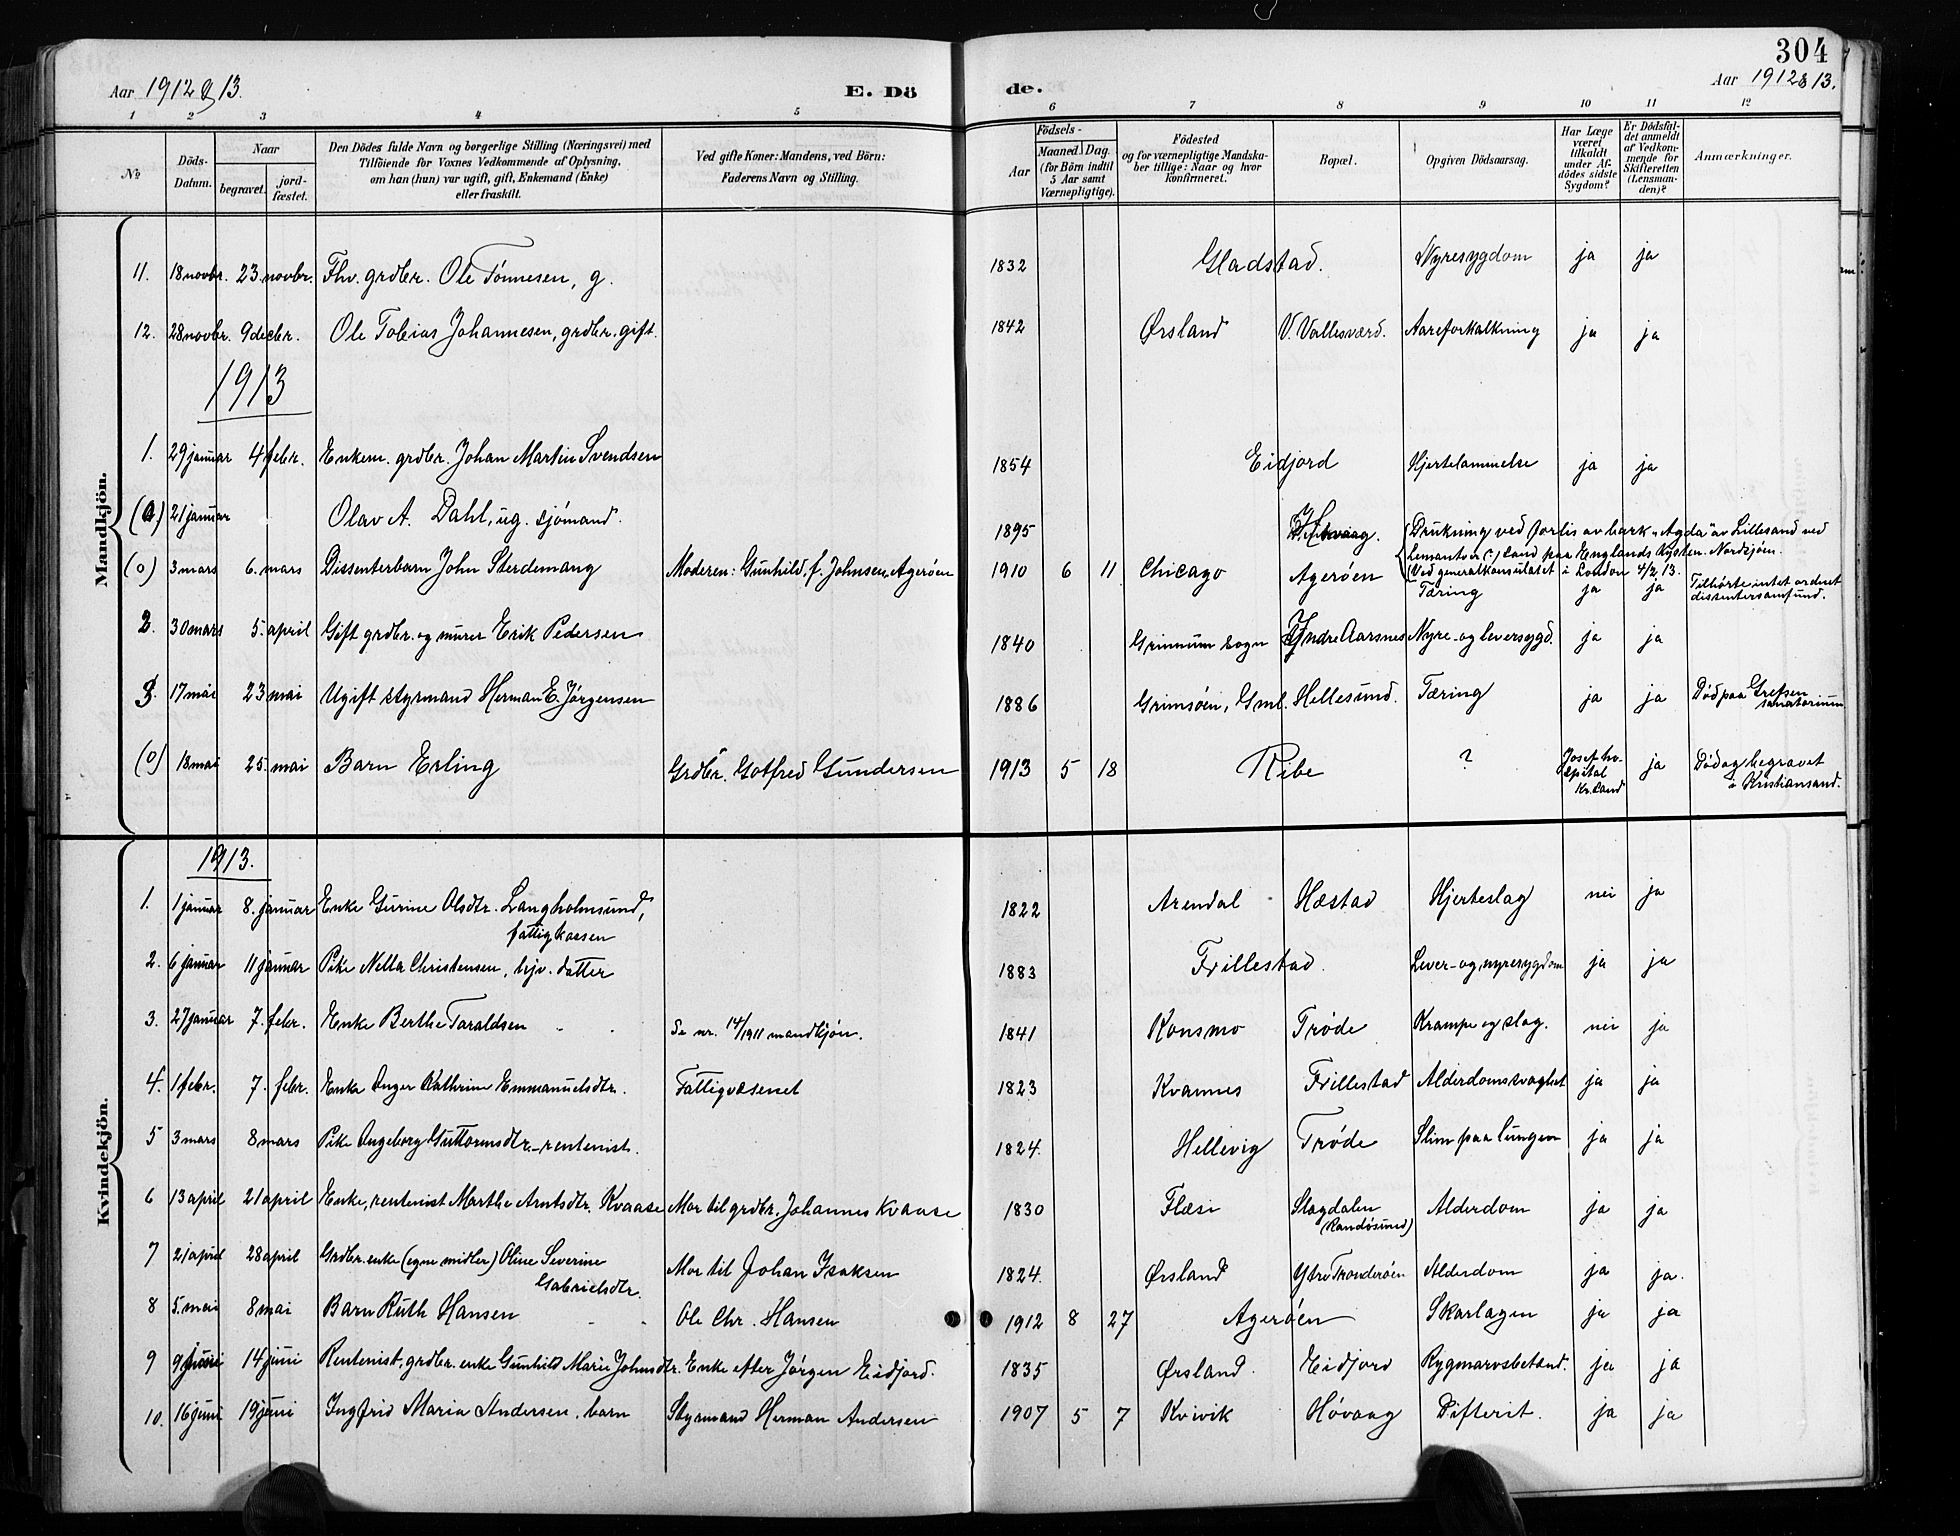 304
Aar 1912 & 13.
E. Dö de.
Aar 1912 & 13.
1 2 3 4 5 6 7 8 9 10 11 12
No
Döds-Datum.
Naar
begravet.
jordfæstet.
Den Dödes fulde Navn og borgerlige Stilling (Næringsvei) med
Tilföiende for Voxnes Vedkommende af Oplysning,
om han (hun) var ugift, gift, Enkemand (Enke)
eller fraskilt.
Ved gifte Koner: Mandens, ved Börn:
Faderens Navn og Stilling.
Födsels-
Aar
Maaned. Dag
(for Börn indtil
5 Aar samt
Værnepligtige).
Födested
og for værnepligtige Mandska-
ber tillige: Naar og hvor
konfirmeret.
Bopæl.
Opgiven Dödsaarsag.
Har Læge
været
tilkaldt
under Af-
dödes sidste
Sygdom?
Er Dödsfal-
det anmeldt
af Vedkom-
mende for
Skifteretten
(Lensman-
den)?
Anmærkninger.
Mandkjön.
11. 18 novbr. 23. novbr. Fhv. grdbr. Ole Tönnesen, g. 1832 Gladstad. Nyresygdom ja ja
12. 28 novbr. 9 decbr. Ole Tobias Johannesen, grdbr. gift. 1842 Ørsland V. Vallesværd. Aareforkalkning ja ja
1913
1. 29 januar 4 febr. Enkem. grdbr. Johan Martin Svendsen 1854 Eidjord Hjertelammelse ja ja
(0) 21 januar Olav A. Dahl, ug. sjömand. 1895 Drukning ved forlis av bark "Agda" av Lillesand ved
Land paa Englands kysten. Nordsjøen.
(Ved generalkonsulatet i London 4/2 13.
(0) 3 mars 6. mars Dissenterbarn John Sterdemang Moderen: Gunhild, f. Johnsen, Agerøen 1910 6 11 Chicago Agerøen Tæring ja ja Tilhørte intet ordnet
dissentersamfund.
2. 30 mars 5. april Gift grdbr. og murer Erik Pedersen 1840 Grimnum sogn Indre Aarsnes Nyre- og leversygd. ja ja
3. 17 mai 23 mai Ugift styrmand Herman E. Jørgensen 1886 Grimsøen, Gml. Hellesund. Tæring ja ja Død paa Grefsen
sanatorium
(0) 18 mai 25. mai Barn Erling Grdbr. Gotfred Gundersen 1913 5 18 Ribe ? Josef ho-
spital
Kr.sand ja Død og begravet
i Kristiansand.
Kvindekjön.
1913.
1. 1 januar 8. januar Enke Gurine Olsdtr. Langholmsund,
fattigkassen 1822 Arendal Hæstad Hjerteslag nei ja
2. 6 januar 11 januar Pike Nella Christensen, hjv. datter 1883 Frillestad. Lever- og nyresygdom ja ja
3. 27 januar 7. febr. Enke Berthe Taraldsen Se nr. 14/1911 mandkjön. 1841 Konsmo Trøde Krampe og slag. nei ja
4. 1 febr. 7. febr. Enke Inger Kathrine Emmanuelsdtr. Fattigvæsenet 1823 Kvannes Frillestad Alderdomssvaghet ja ja
5 3 mars 8 mars Pike Ingeborg Guttormsdtr. - rentenist. 1824. Hellevig Trøde Slim paa lungen ja ja
6 13 april 21 april Enke, rentenist Marthe Arntsdtr. Kvaase Mor til grdbr. Johannes Kvaase 1830 Flæsi Slagdalen
(Randøsund) Alderdom ja ja
7 21 april 28 april Grdbr. enke (egne midler) Oline Severine
Gabrielsdtr. Mor til Johan Isaksen 1824. Ørsland Ytre Tronderøen Alderdom ja ja.
8 5. mai 8 mai Barn Ruth Hansen Ole Chr. Hansen 1912 8 27 Agerøen Skarlagen ja ja
9 9 juni 14 juni Rentenist, grdbr. enke Gunhild Marie Johnsdtr. Enke efter Jørgen Eidjord. 1835 Ørsland. Eidjord Rygmarvsbetænd. ja ja
10. 16 juni 19 juni Ingfrid Maria Andersen, barn Styrmand Herman Andersen 1907 5 7 Kvivik Høvaag Difterit. ja ja